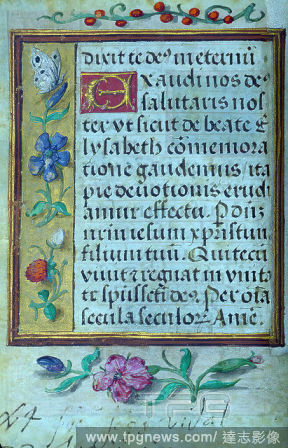 dixit te deꝰ in eternū
Exaudi nos deꝰ
salutaris nos
ter vt sicut de beate E
lysabeth cōmemora
tione gaudemus / ita
pie deuotionis erudi
amur effectu. P dn̄ȝ
nr̄m iesum xp̄ristum
filium tuū. Qui tecū
viuit ⁊ regnat in vnita
te sp̄ussctī deꝰ. Per oīa
secula seculoꝝ. Amē.
TPG
www.tpgnews.com / 達志影像